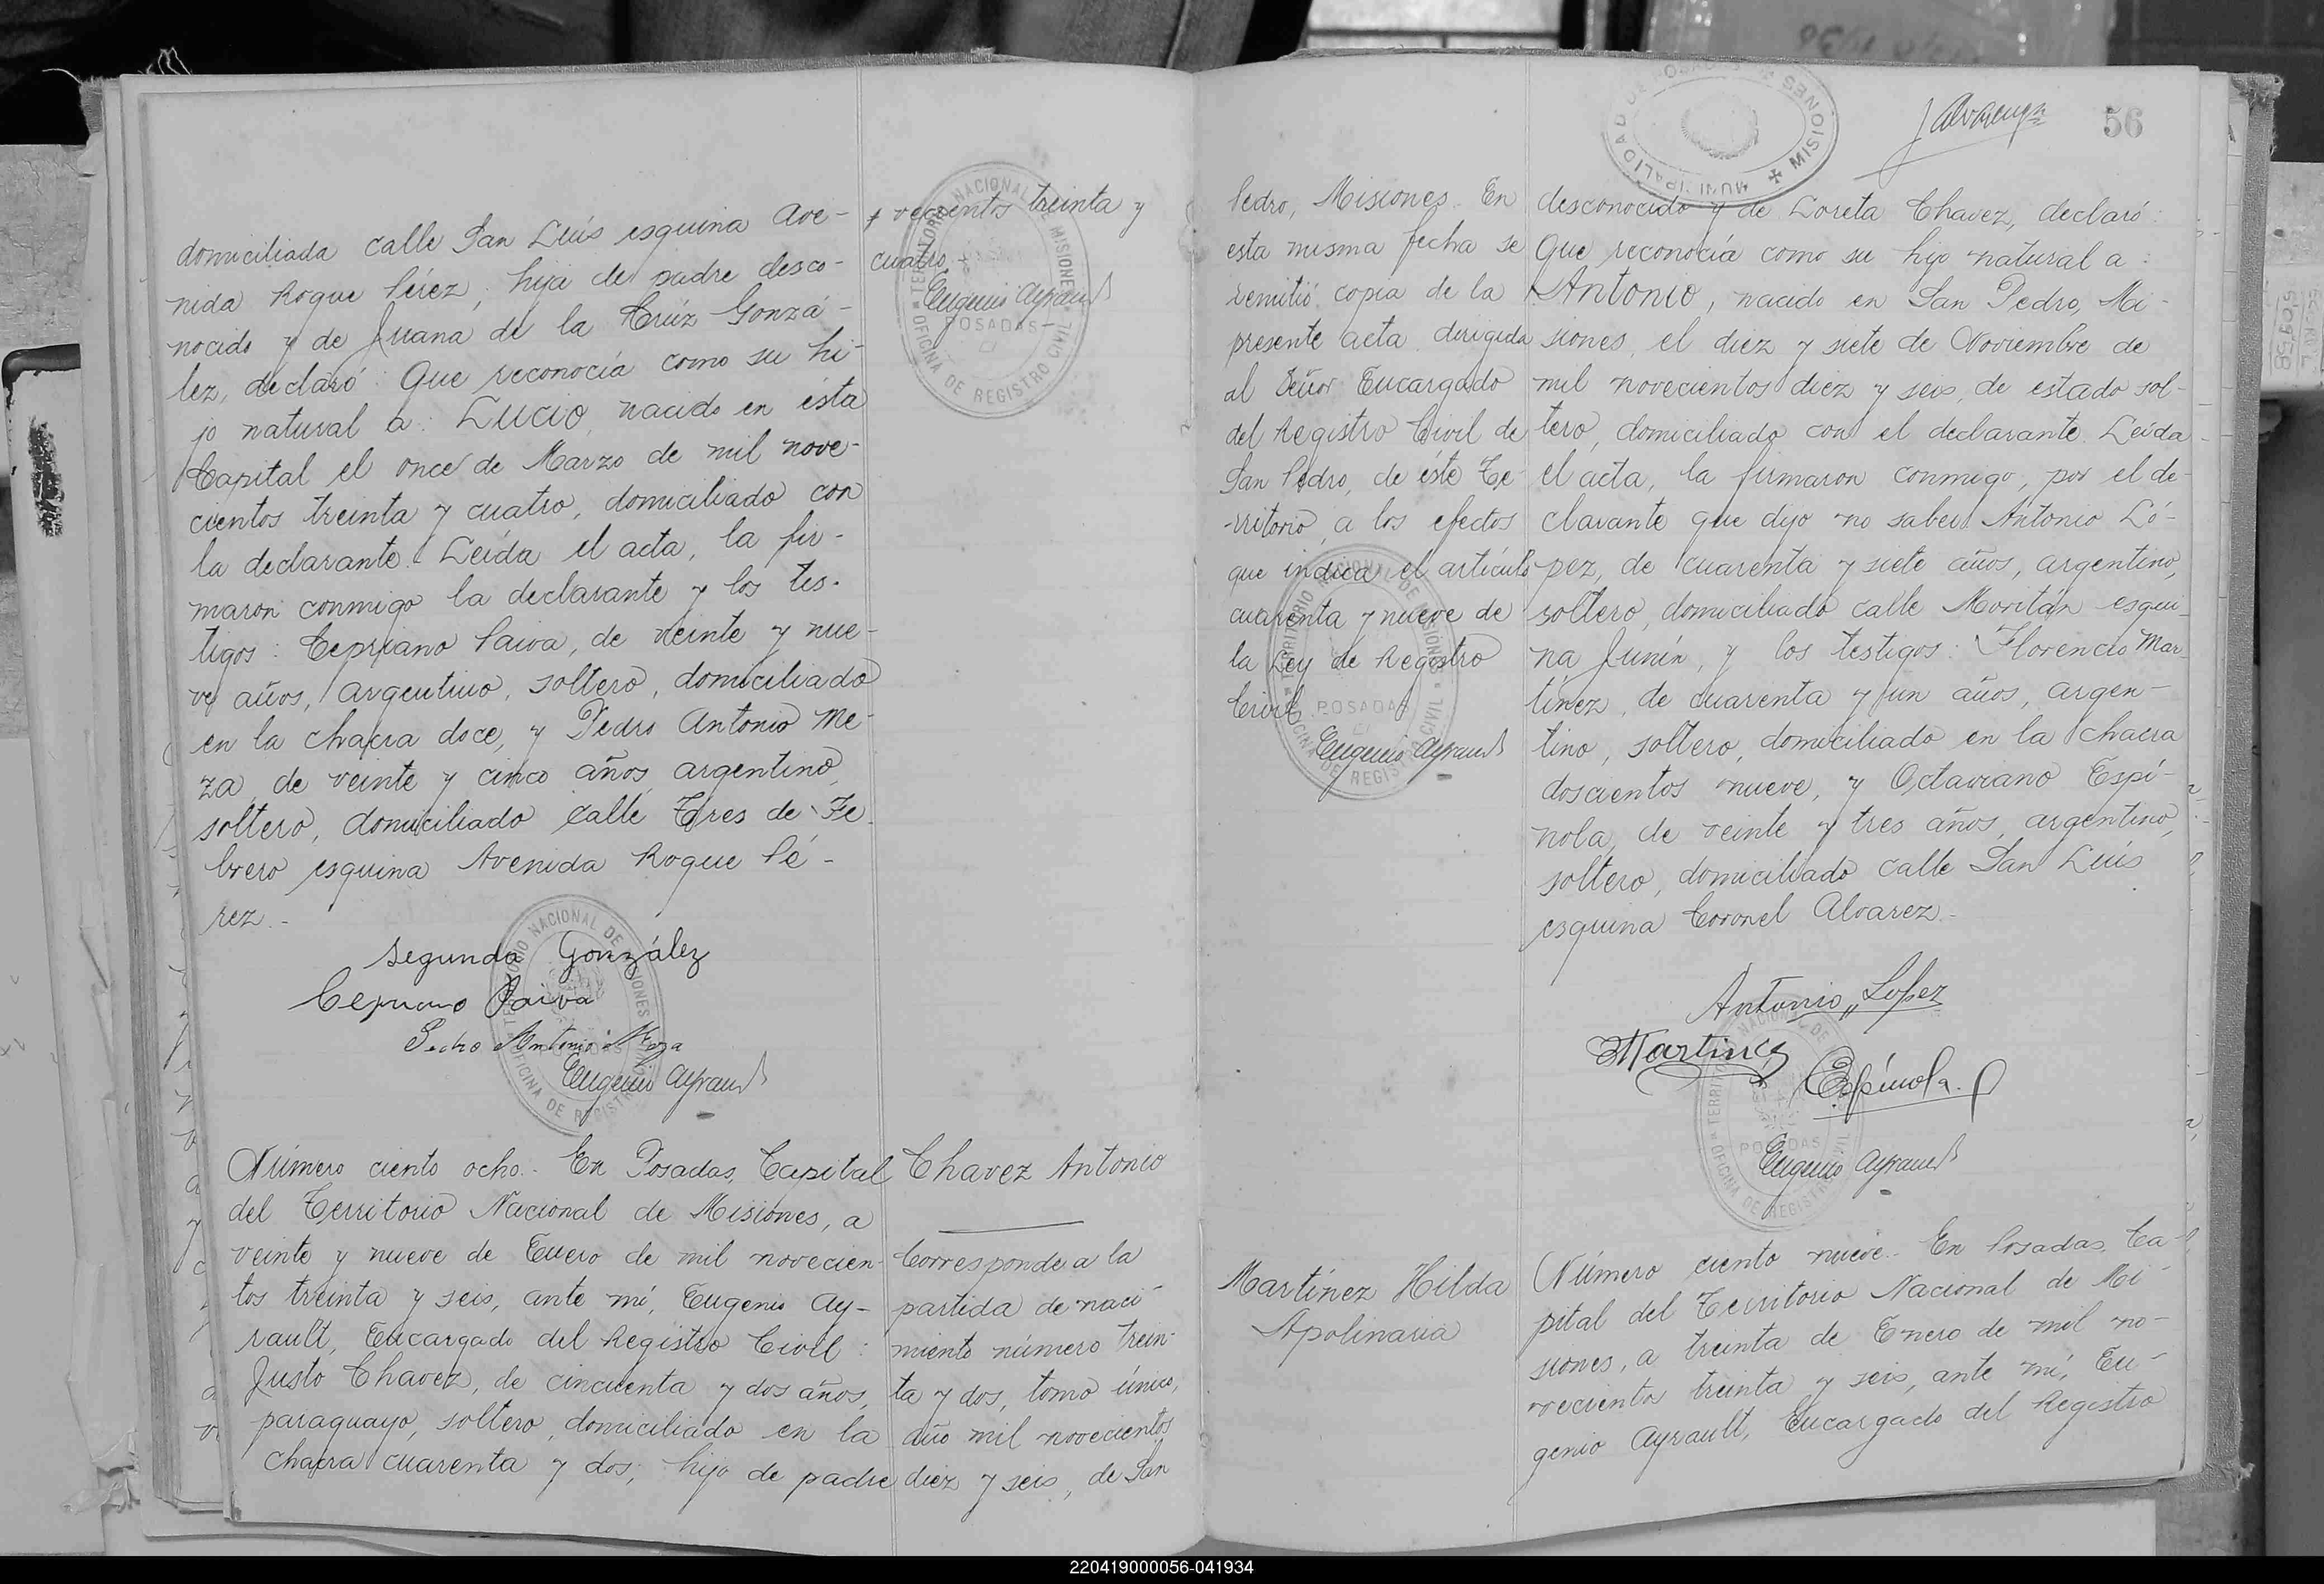 domiciliada calle San Luis esquina Ave-
nida Roque Pérez, hija de padre desco-
nocido y de Juana de la Crúz Gonzá-
lez, declaró: Que reconocía como su hi-
jo natural a: Lucio, nacido en ésta
Capital el once de Marzo de mil nove-
cientos treinta y cuatro, domiciliado con
la declarante. Leída el acta, la fir-
maron conmigo la declarante y los tes-
tigos: Cepriano Paiva, de veinte y nue-
ve años, argentino, soltero, domiciliado
en la chacra doce, y Pedro Antonio Me-
za, de veinte y cinco años, argentino,
soltero, domiciliado calle Tres de Fe-
brero esquina Avenida Roque Pé-
rez.-
Segunda González
Cepriano Paiva
Pedro Antonio Meza
Eugenio Ayrault
vecientos treinta y
cuatro.
Eugenio Ayrault
TERRITORIO NACIONAL DE MISIONES
POSADAS
OFICINA DE REGISTRO CIVIL
Número ciento ocho.- En Posadas, Capital
del Territorio Nacional de Misiones, a
veinte y nueve de Enero de mil novecien-
tos treinta y seis, ante mí, Eugenio Ay-
rault, Encargado del Registro Civil:
Justo Chavez, de cincuenta y dos años,
paraguayo, soltero, domiciliado en la
chacra cuarenta y dos; hijo de padre
Chavez Antonio
Corresponde a la
partida de naci-
miento número trein-
ta y dos, tomo único,
año mil novecientos
diez y seis, de San
Pedro, Misiones. En
esta misma fecha se
remitió copia de la
presente acta dirigida
al Señor Encargado
del Registro Civil de
San Pedro, de éste Te-
rritorio, a los efectos
que indica el artículo
cuarenta y nueve de
la Ley de Registro
Civil.
Eugenio Ayrault
MUNICIPALIDAD DE POSADAS MISIONES
56
desconocido y de Loreta Chavez, declaró:
Que reconocía como su hijo natural a:
Antonio, nacido en San Pedro, Mi-
siones, el diez y siete de Noviembre de
mil novecientos diez y seis, de estado sol-
tero, domiciliado con el declarante. Leída
el acta, la firmaron conmigo, por el de-
clarante que dijo no saber Antonio Ló-
pez, de cuarenta y siete años, argentino,
soltero, domiciliado calle Moritán esqui-
na Junín, y los testigos: Florencio Mar-
tínez, de cuarenta y un años, argen-
tino, soltero, domiciliado en la chacra
doscientos nueve, y Octaviano Espí-
nola, de veinte y tres años, argentino,
soltero, domiciliado calle San Luis
esquina Coronel Alvarez.-
Antonio Lopez
Martinez
Espínola.
Eugenio Ayrault
Martínez Hilda
Apolinaria
Número ciento nueve.- En Posadas, Ca-
pital del Territorio Nacional de Mi-
siones, a treinta de Enero de mil no-
vecientos treinta y seis, ante mí, Eu-
genio Ayrault, Encargado del Registro
220419000056-041934